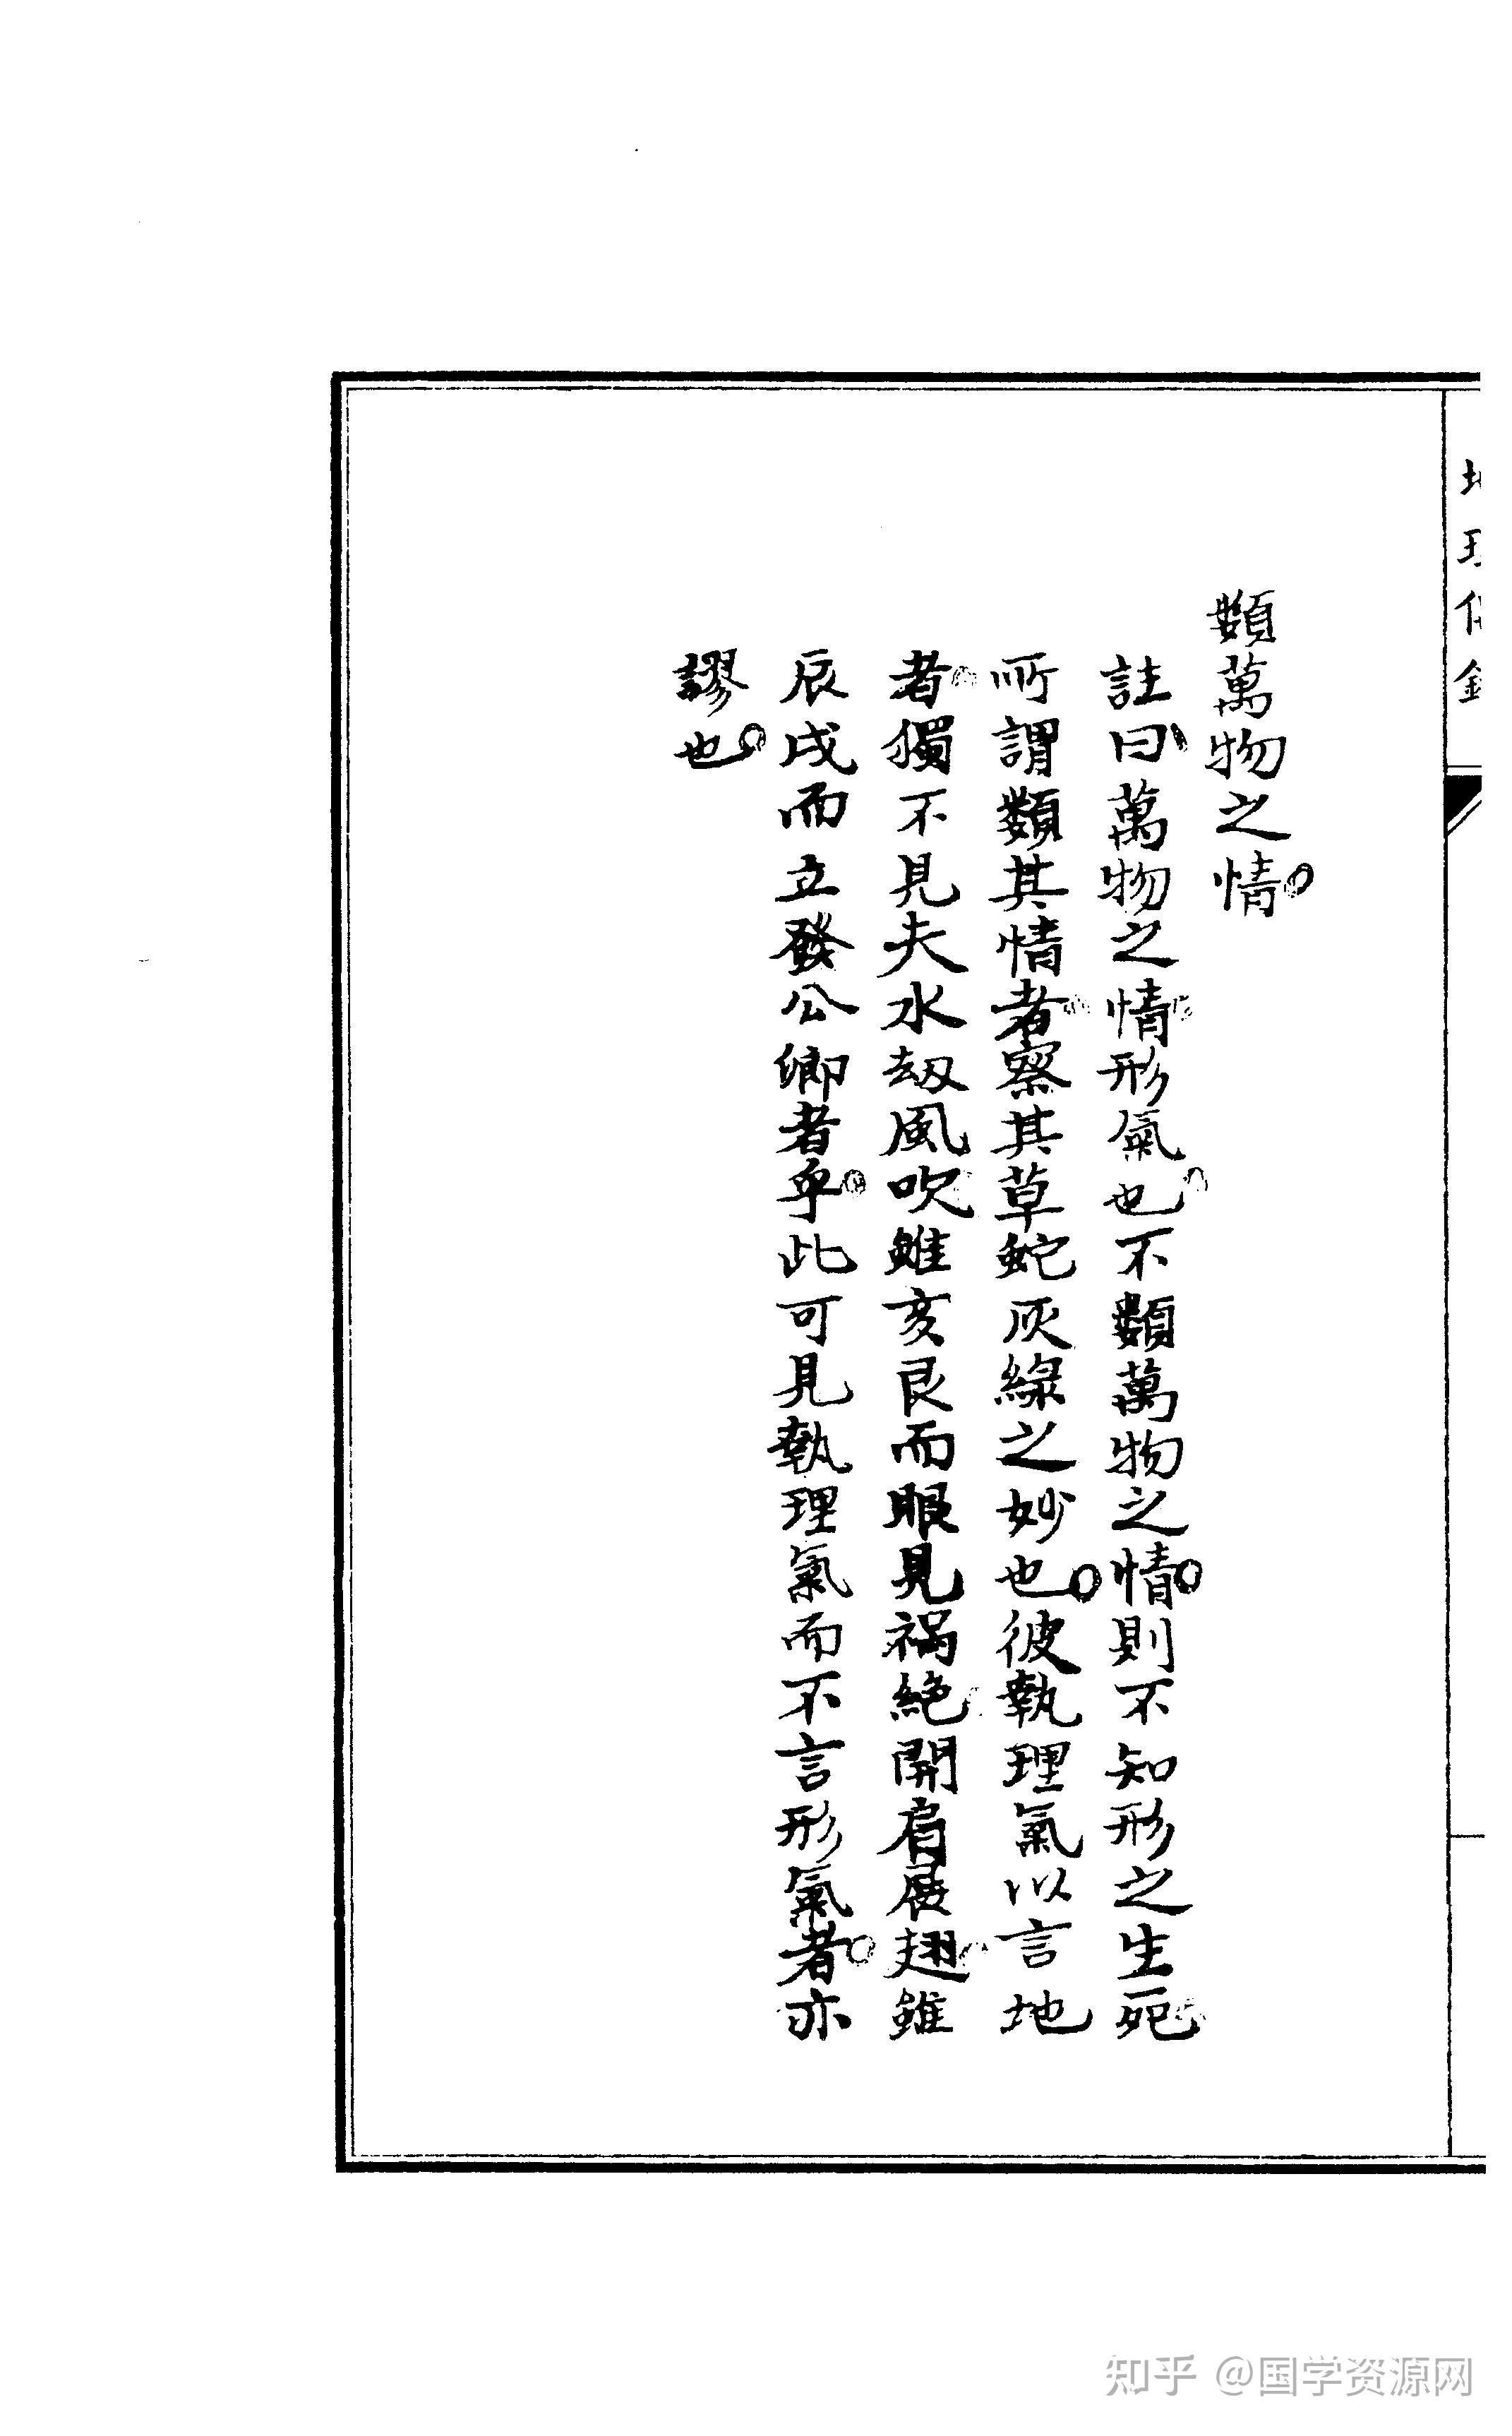 類萬物之情
註曰萬物之情形氣也不類萬物之情則不知形之生死
所謂類其情者察其草蛇灰線之妙也彼執理氣以言地
者獨不見夫水劫風吹雖亥艮而眼見禍絶開肩展翅雖
辰戌而立發公卿者乎此可見執理氣而不言形氣者亦
謬也
知乎 @国学资源网